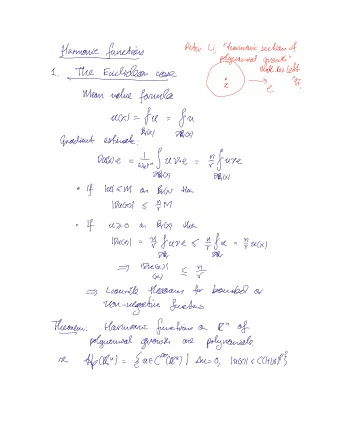 Harmonic functions
Peter Li, "Harmonic sections of
polynomial growth"
Math. Res. Lett
1. The Euclidean case
x
e
Mean value formula
u(x) = ⨍ u = ⨍ u
B_r(x) ∂B_r(x)
Gradient estimate:
Du(x)·e = 1/(ω_n r^n) ∫ u ν·e = n/r ⨍ u ν·e
∂B_r(x) ∂B_r(x)
• If |u| ≤ M on B_r(x) then
|Du(x)| ≤ n/r M
• If u ≥ 0 on B_r(x) then
|Du(x)| = n/r ⨍ u ν·e ≤ n/r ⨍ u = n/r u(x)
∂B_r ∂B_r
⇒ |Du(x)|/u(x) ≤ n/r
⇒ Liouville theorems for bounded or
non-negative functions
Theorem: Harmonic functions on ℝⁿ of
polynomial growth are polynomials
H_p(ℝⁿ) = { u ∈ C^∞(ℝⁿ) | Δu = 0, |u(x)| ≤ C(1+|x|)^p }